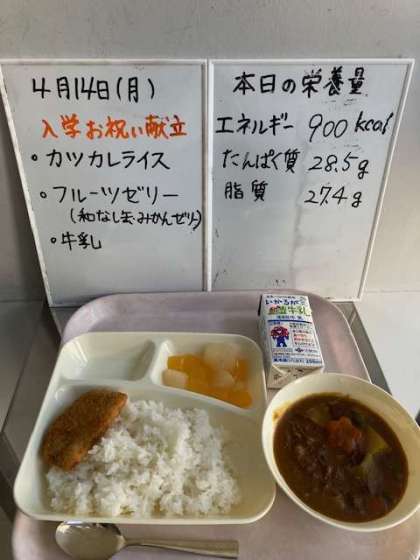 4月14日(月)
入学お祝い献立
・カツカレライス
・フルーツゼリー
(和なし缶・みかんゼリー)
・牛乳
本日の栄養量
エネルギー 900 kcal
たんぱく質 28.5g
脂質 27.4g
いかるが
牛乳